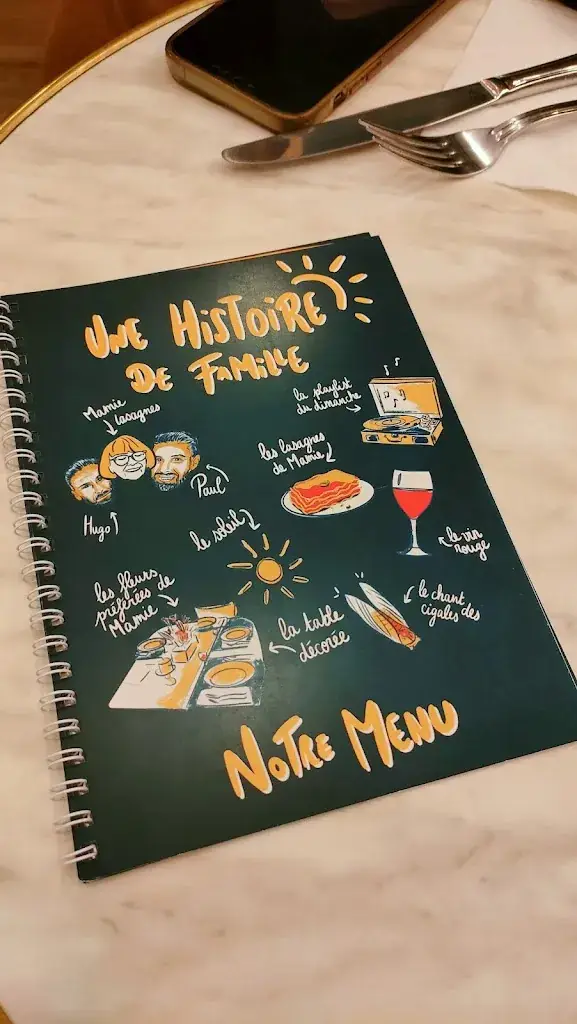 Une Histoire
de Famille
Mamie
lasagnes
Hugo
Paul
la playlist
du dimanche
les lasagnes
de Mamie
le vin
rouge
le soleil
les fleurs
préférées de
Mamie
la table
décorée
le chant
cigales des
Notre Menu